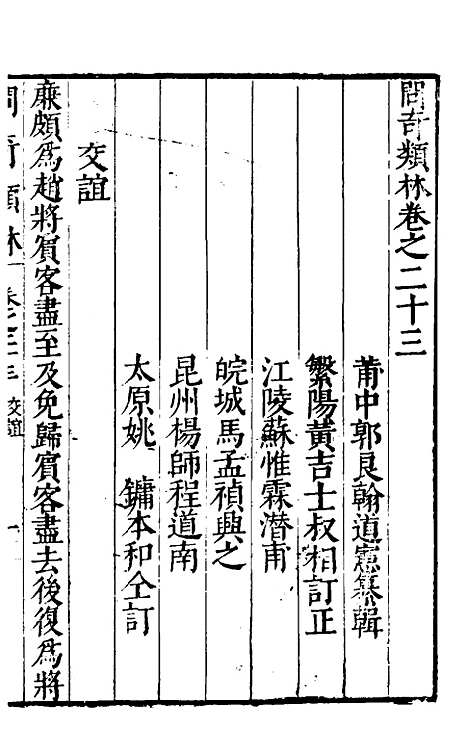 問奇類林卷之二十三
莆中郭良翰道憲纂輯
繁陽黃吉士叔相訂正
江陵蘇惟霖潛甫
皖城馬孟禎興之
昆州楊師程道南
太原姚 鏞本和仝訂
交誼
廉頗爲趙將賓客盡至及免歸賓客盡去後復爲將
問奇類林 卷之二十三 交誼 一